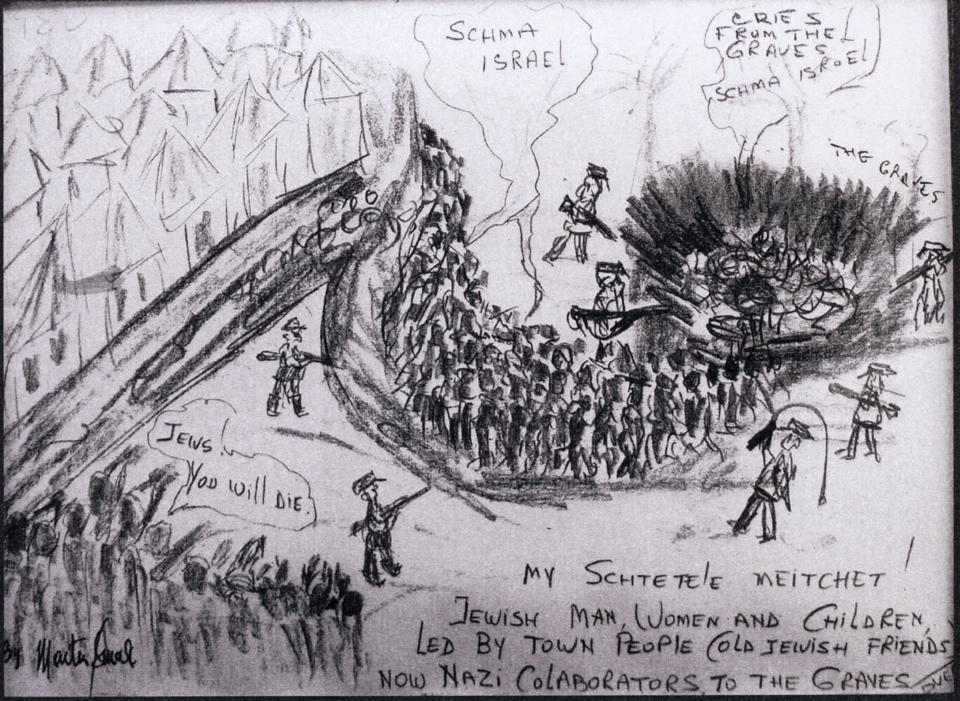 SCHMA
ISRAEL
CRIES
FROM THE
GRAVES
SCHMA ISROEL
THE GRAVES
JEWS!
YOU WILL DIE.
MY SCHTETELE MEITCHET!
JEWISH MAN, WOMEN AND CHILDREN,
LED BY TOWN PEOPLE (OLD JEWISH FRIENDS
NOW NAZI COLABORATORS, TO THE GRAVES
By Martin